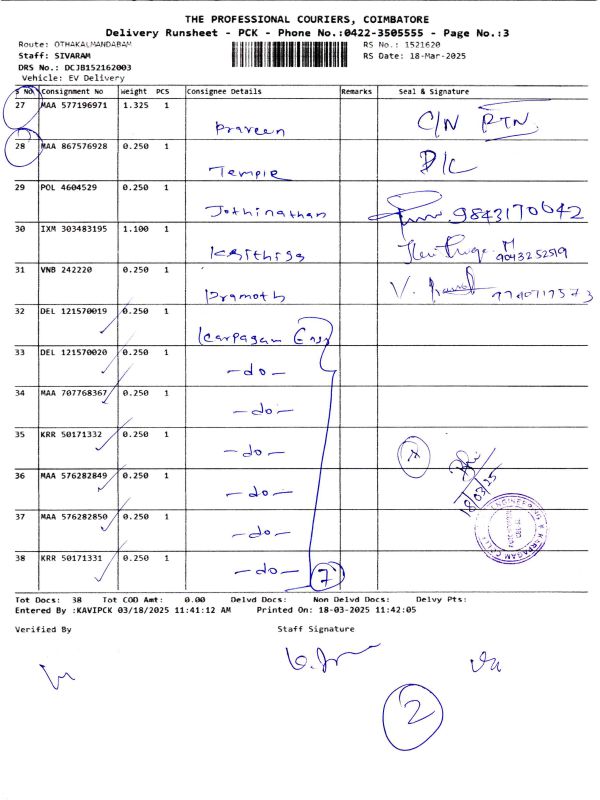 THE PROFESSIONAL COURIERS, COIMBATORE
Delivery Runsheet - PCK - Phone No.:0422-3505555 - Page No.:3
Route: OTHAKALMANDABAM RS No.: 1521620
Staff: SIVARAM RS Date: 18-Mar-2025
DRS No.: DCJB152162003
Vehicle: EV Delivery
S No Consignment No Weight PCS Consignee Details Remarks Seal & Signature
27 MAA 577196971 1.325 1 Praveen C/N RTN.
28 MAA 867576928 0.250 1 Temple D/C
29 POL 4604529 0.250 1 Jothinathan 9843170642
30 IXM 303483195 1.100 1 9043252519
31 VNB 242220 0.250 1 Pramoth V.
32 DEL 121570019 0.250 1 Karpagam Engg
33 DEL 121570020 0.250 1 -do-
34 MAA 707768367 0.250 1 -do-
35 KRR 50171332 0.250 1 -do-
36 MAA 576282849 0.250 1 -do- 18/03/25
37 MAA 576282850 0.250 1 -do-
38 KRR 50171331 0.250 1 -do- 7
Tot Docs: 38 Tot COD Amt: 0.00 Delvd Docs: Non Delvd Docs: Delvy Pts:
Entered By :KAVIPCK 03/18/2025 11:41:12 AM Printed On: 18-03-2025 11:42:05
Verified By Staff Signature
2